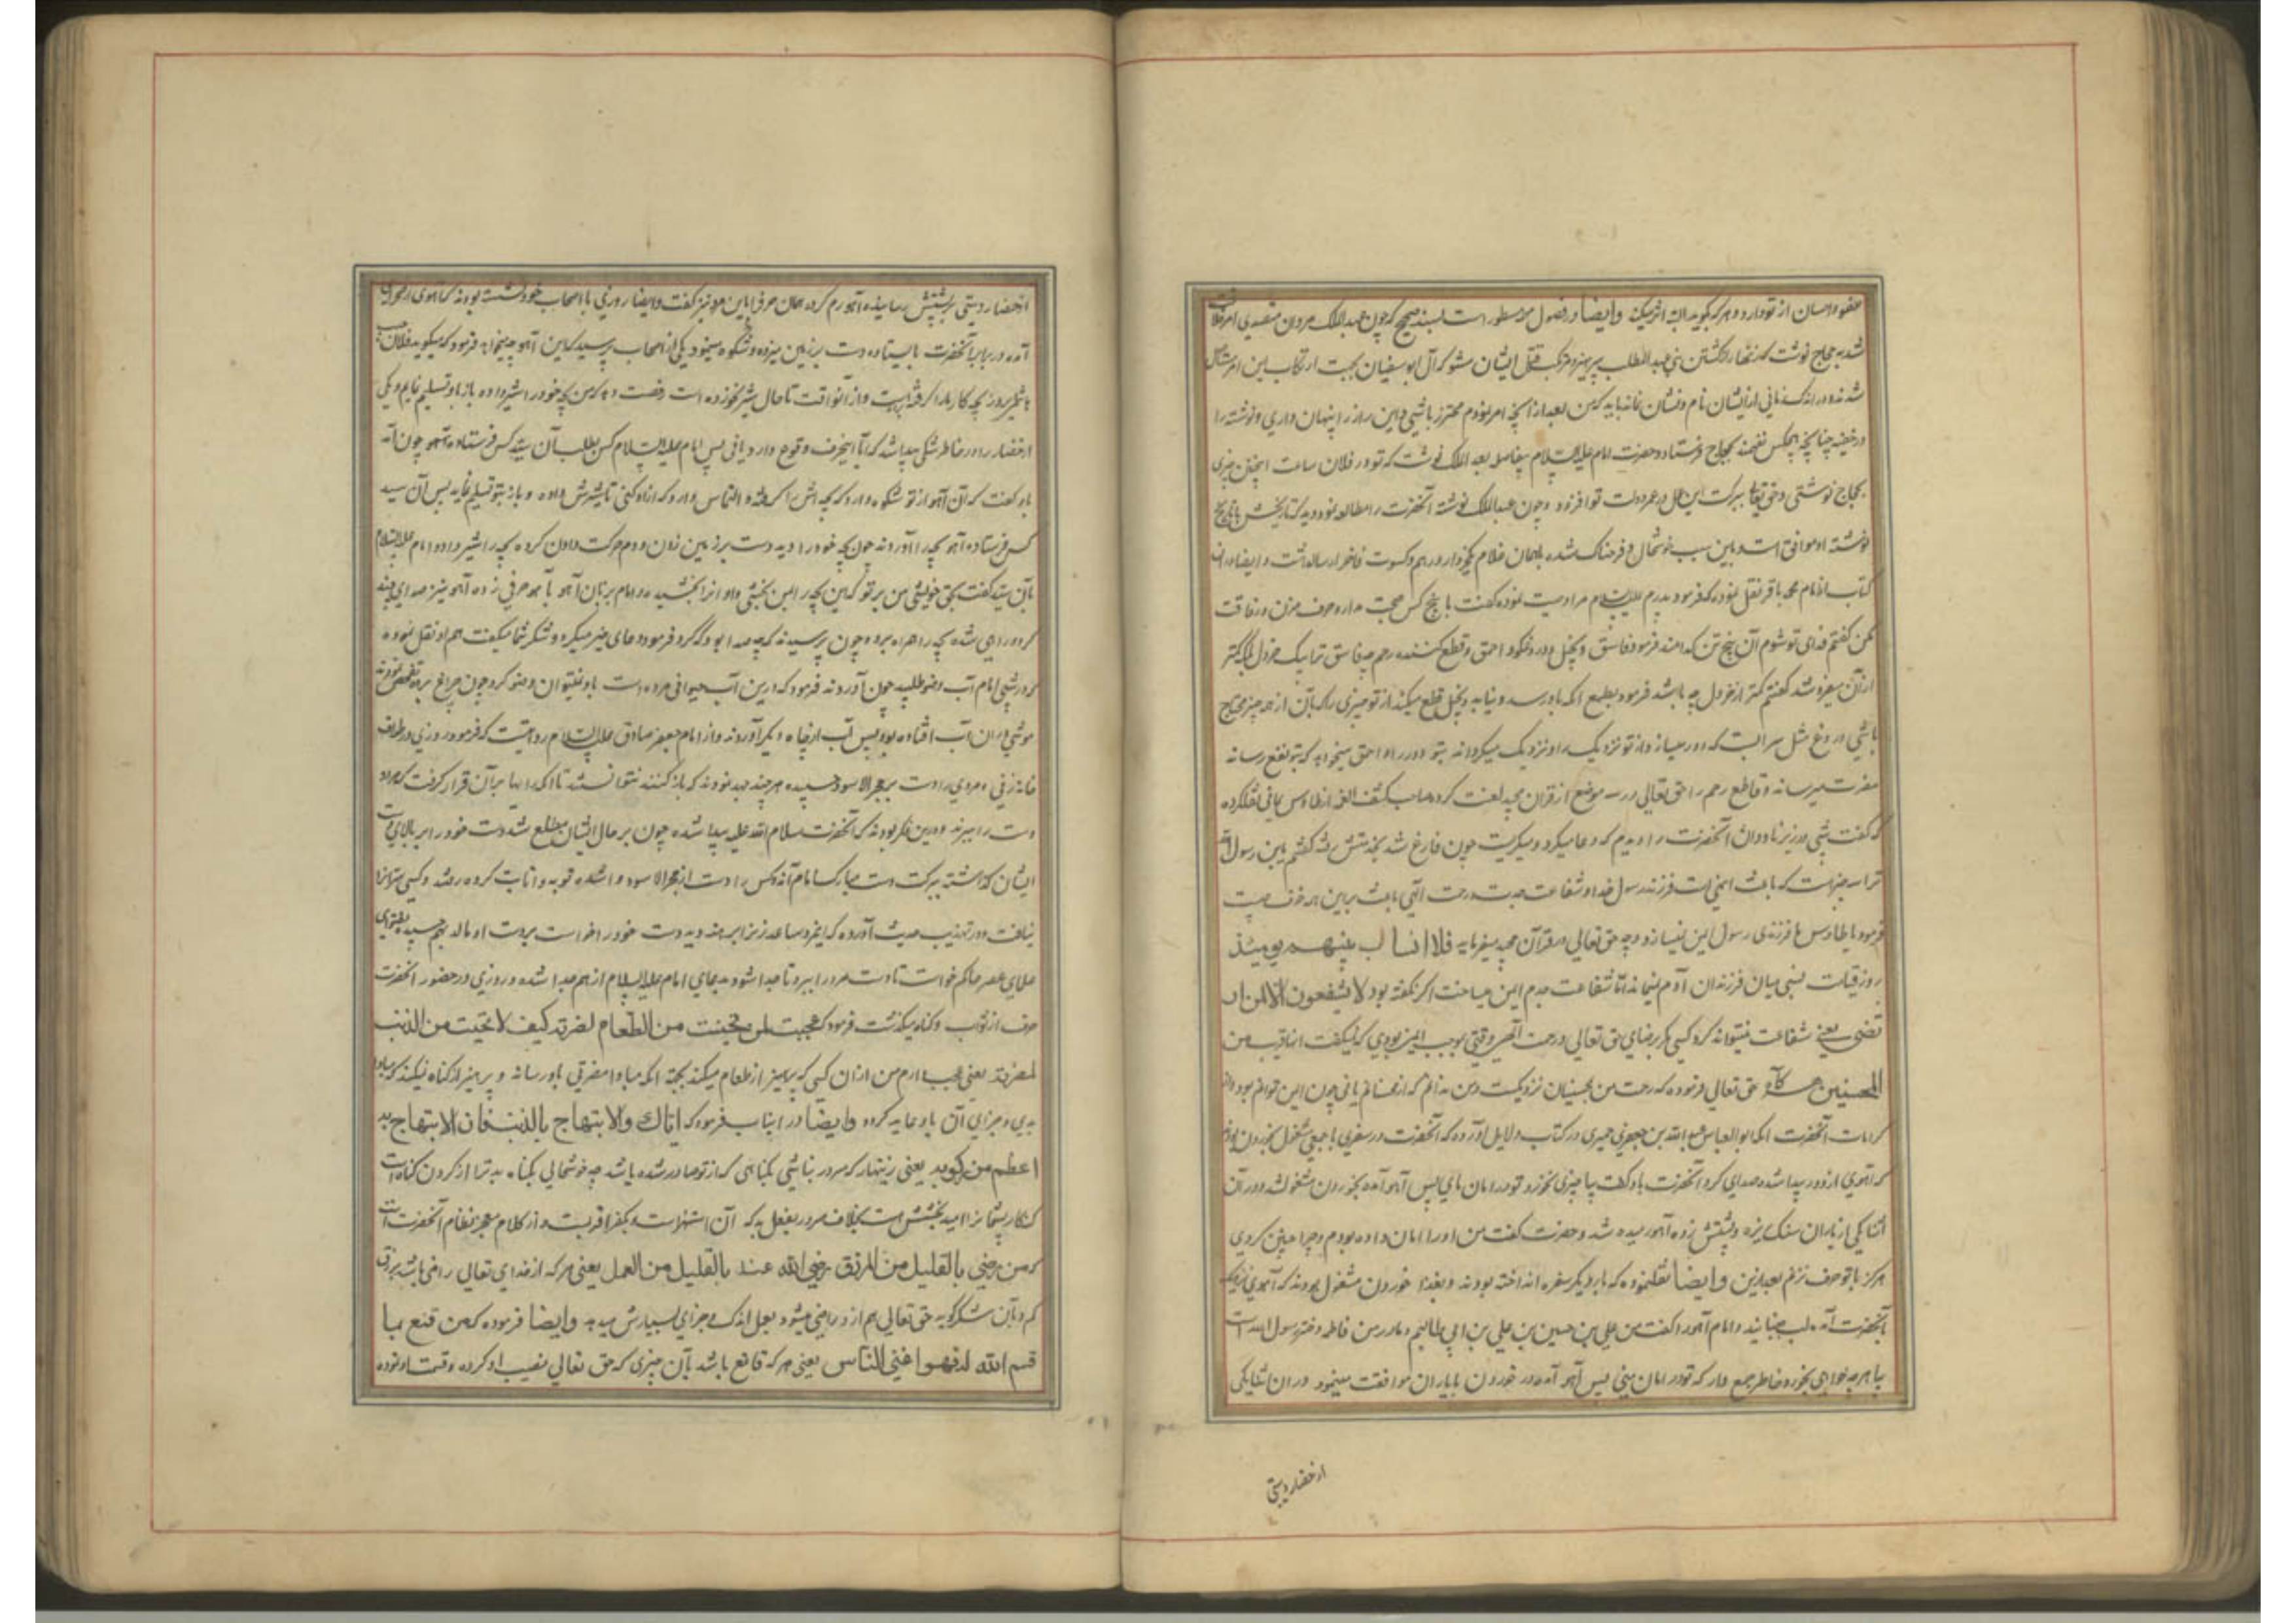 عفو و احسان از تو دارد و هر که گوید البته اثر میکند وایضا در فصول مهمه مسطور است بسند صحیح که چون عبدالملک مروان متصدی امر خلافت
شد به حجاج نوشت که زنهار از کشتن بنی عبدالمطلب بپرهیز و مرتکب قتل ایشان مشو که آل ابو سفیان بجهت ارتکاب این امر
شدند و در اندک زمانی از ایشان نام و نشان نماند باید که من بعد از آنچه امر نمودم محترز باشی و این راز را پنهان داری و نوشته را
در خفیه چنانچه هیچکس نفهمد بحجاج فرستاد و حضرت امام علیه السلام بعبد الملک نوشت که تو در فلان ساعت اینچنین چیزی
بحجاج نوشتی و حق تعالی ببرکت این عمل در عمر و دولت تو افزود و چون عبدالملک نوشته آنحضرت را مطالعه نمود و دید که تاریخش با تاریخ
نوشته او موافق است باین سبب خوشحال و فرحناک شده بهمان غلام یکخروار درهم و کسوت فاخر ارسال داشت و ایضا در این
کتاب از امام محمد باقر نقل نموده که فرمود پدرم علیه السلام مرا وصیت نموده گفت با پنج کس صحبت مدار و حرف مزن و رفاقت
مکن گفتم فدای تو شوم آن پنج تن کدامند فرمود فاسق و بخیل و دروغگو و احمق و قطع کننده رحم چه فاسق ترا بیک خردل بلکه کمتر
از آن میفروشد گفتم کمتر از خردل چه باشد فرمود بطمع آنکه باو رسد و نیابد و بخیل قطع میکند از تو چیزی را که بآن از همه چیز محتاج
باشی و دروغ مثل سرابست که دور میسازد از تو نزدیک را و نزدیک میگرداند بتو دور را و احمق میخواهد که بتو نفع رساند
مضرت میرساند و قاطع رحم را حق تعالی در سه موضع از قران مجید لعنت کرده صاحب کشف الغمه از طاوس یمانی نقل کرده
که گفت شبی در زیر ناودان آنحضرت را دیدم که دعا میکرد و میگریست چون فارغ شد بخدمتش رفته گفتم یابن رسول الله
ترا سه چیز است که باعث ایمنی است فرزندی رسول خدا و شفاعت جدت و رحمت آلهی باعث براین همه خوف چیست
فرمود یا طاوس اما فرزندی رسول ایمن نمیسازد چه حق تعالی در قرآن مجید میفرماید فلا انساب بینهم یومئذ
روز قیامت نسبی میان فرزندان آدم نمیماند اما شفاعت جدم ایمن میساخت اگر نگفته بود لا یشفعون الا لمن ار
تضی یعنی شفاعت نمیتواند کرد کسی مگر برضای حق تعالی و رحمت آلهی وقتی موجب ایمن بودی که نمیگفت انها قریب من
المحسنین حق تعالی فرموده که رحمت من بمحسنان نزدیکست و من ندانم که از محسنانم یا نی چون ایمن توانم بود و از
کرامات آنحضرت آنکه ابوالعباس عبدالله بن جعفر حمیری در کتاب دلایل آورده که آنحضرت در سفری با جمعی مشغول بخوردن بودند
که آهوی از دور پیدا شده صدای کرد آنحضرت باو گفت بیا چیزی بخور تو در امان مایی پس آهو آمده بخوردن مشغول شد و در آن
اثنا یکی از یاران سنگ ریزه بر پشتش زده آهو رمیده شد و حضرت گفت من او را امان داده بودم و چرا چنین کردی
هرگز با تو حرف نزنم بعد ازین وایضا نقل نموده که بار دیگر سفره انداخته بودند و بغذا خوردن مشغول بودند که آهوی نزدیک
بآنحضرت آمد لب جنبانید و امام آهو را گفت من علی بن حسین بن علی بن ابی طالبم و مادر من فاطمه دختر رسول الله است
بیا هرچه خواهی بخور و خاطر جمع دار که تو در امان منی پس آهو آمده در خوردن با یاران موافقت مینمود در آن اثنا یکی
از حضار دستی
از حضار دستی بر پشتش رسانیده آهو رم کرد همان حرف را باین مرد نیز گفت وایضا روزی با اصحاب خود نشسته بودند که آهوی از صحرا
آمده در برابر آنحضرت بایستاده دست بر زمین میزد و شکوه مینمود یکی از اصحاب پرسید که این آهو چه میخواهد فرمود که میگوید فلان
هاشمی دیروز بچه کار ما را گرفته است و از آنوقت تا حال شیر نخورده است رخصت دهد که من بچه خود را شیر داده باز باو تسلیم نمایم و یکی
از حضار را در خاطر شکی پیدا شد که آیا اینحرف وقوع دارد یا نی پس امام علیه السلام کس بطلب آن سید کس فرستاده آهو چون آمد
باو گفت که این آهو از تو شکوه دارد که بچه اش را گرفته و التماس دارد که امداد کنی تا شیرش داده و باز بتو تسلیم نماید پس آن سید
کس فرستاده آهو بچه را آوردند چون بچه خود را دید دست بر زمین زدن و دم حرکت دادن کرده بچه را شیر داد و امام علیه السلام
بآن سید گفت بحق خویشی من بر تو که این بچه را بمن بخشی و او آنرا بخشیده و امام بزبان آهو با آهو حرفی زده آهو نیز صدای چند
کرد و راهی شده بچه را همراه برده و چون پرسیدند که چه صدا بود که کرد فرمود دعای خیر میکرد و شکر شما میگفت هم او نقل نموده
که در شبی امام آب وضو طلبید چون آوردند فرمود که درین آب حیوانی مرده است باو نمیتوان وضو کرد چون چراغ برده تفحص نمودند
موشی در آن آب افتاده بود پس آب از چاه دیگر آوردند و از امام جعفر صادق علیه السلام روایتست که فرمود روزی در طواف
خانه زنی و مردی را دست بر حجر الاسود چسپیده هرچند جهد نمودند که باز کنند نتوانستند تا آنکه رایها بر آن قرار گرفت که هر دو
دست را ببرند و درین فکر بودند که آنحضرت سلام الله علیه پیدا شده چون بر حال ایشان مطلع شد دست خود را بر بالای دست
ایشان گذاشته ببرکت دست مبارک امام آن دو کس را دست از حجر الاسود وا شده توبه و انابت کرده رفتند و کسی سر آنرا
نیافت و در تهذیب حدیث آورده که اینمرد ساعد زن را برهنه دیده دست خود را خواست بر دست او مالد بهم چسپید بفتوای
علمای عصر حاکم خواست تا دست مرد را ببرد تا جدا شود بدعای امام علیه السلام از هم جدا شده و روزی در حضور آنحضرت
حرف از ثواب و گناه میگذشت فرمود که عجبت لمن یحتمی من الطعام لمضرته کیف لا یحتمی من الذنب
لمضرته یعنی عجب دارم من از آن کسی که پرهیز از طعام میکند بجهته آنکه مبادا مضرتی باو رساند و پرهیز از گناه نمیکند که مبادا
بدی و جزای آن باو عاید گردد وایضا در اینباب فرمود که ایاک والابتهاج بالذنب فان الابتهاج به
اعظم من رکوبه یعنی زینهار که مسرور نباشی بگناهی که از تو صادر شده باشد چه خوشحالی بگناه بدتر از کردن گناه است
گنهکار پشیمانرا امید بخشش است بخلاف مسرور بفعل بد که آن استهزاست و بکفر اقربست و از کلام معجز نظام آنحضرت است
که من رضی بالقلیل من الرزق رضی الله عنه بالقلیل من العمل یعنی هر که از خدای تعالی راضی باشد برزق
کم و بآن شکر گوید حق تعالی هم از و راضی میشود بعمل اندک و جزای بسیارش میدهد وایضا فرموده که من قنع بما
قسم الله له فهو اغنی الناس یعنی هر که قانع باشد بآن چیزی که حق تعالی نصیب او کرده و قسمت او نموده